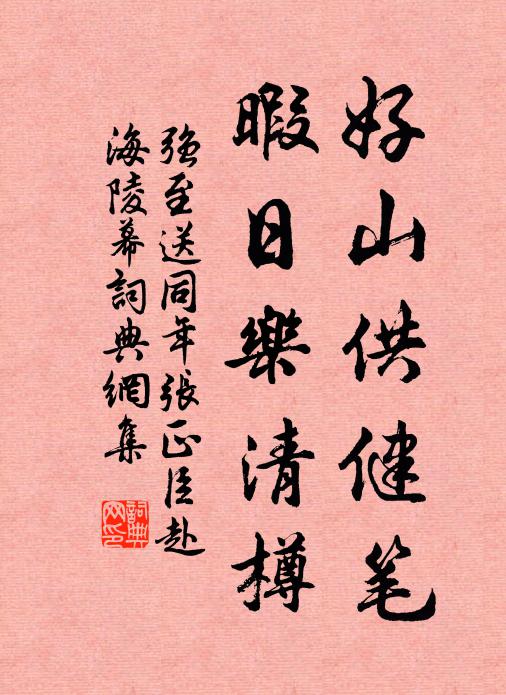 好山供健笔
暇日樂清樽
強至送同年張正臣赴
海陵幕詞典網集
詞典
网印